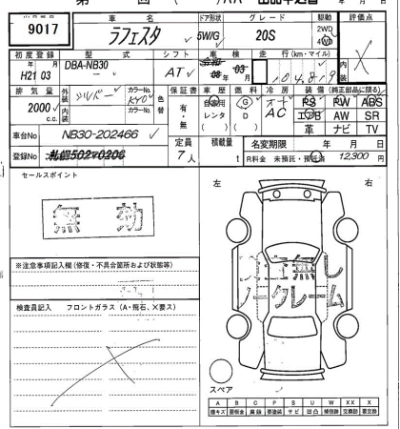 9017
車名
ドア形状
グレード
駆動
評価点
ラフェスタ
5W/G
20S
2WD
4WD
初度登録
型式
シフト
車検
走行(km・マイル)
内装
H21 03
DBA-NB30
AT
08 03
104,819
排気量
外装
シルバー
カラーNo.
KY0
色替
保証書
車歴
燃料
冷房
装備(純正部品に限る)
2000 c.c.
内装
カラーNo.
有・無
自家用
レンタ
( )
G
D
( )
オート
AC
PS PW ABS
エアB AW SR
革 ナビ TV
車台No
NB30-202466
定員
7人
積載量
t
名変期限
年 月 日
登録No
R料金 未預託・預託済
12,300
円
セールスポイント
無効
左
右
※注意事項記入欄(修復・不具合箇所および状態等)
検査員記入 フロントガラス(A・飛石、X要ス)
無し
ノークレーム
スペア
A B C P S U W XX X